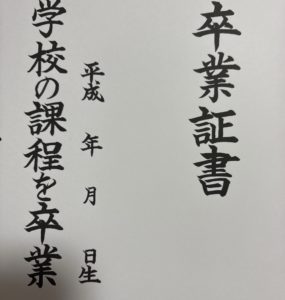 卒業証書
平成 年 月 日生
学校の課程を卒業